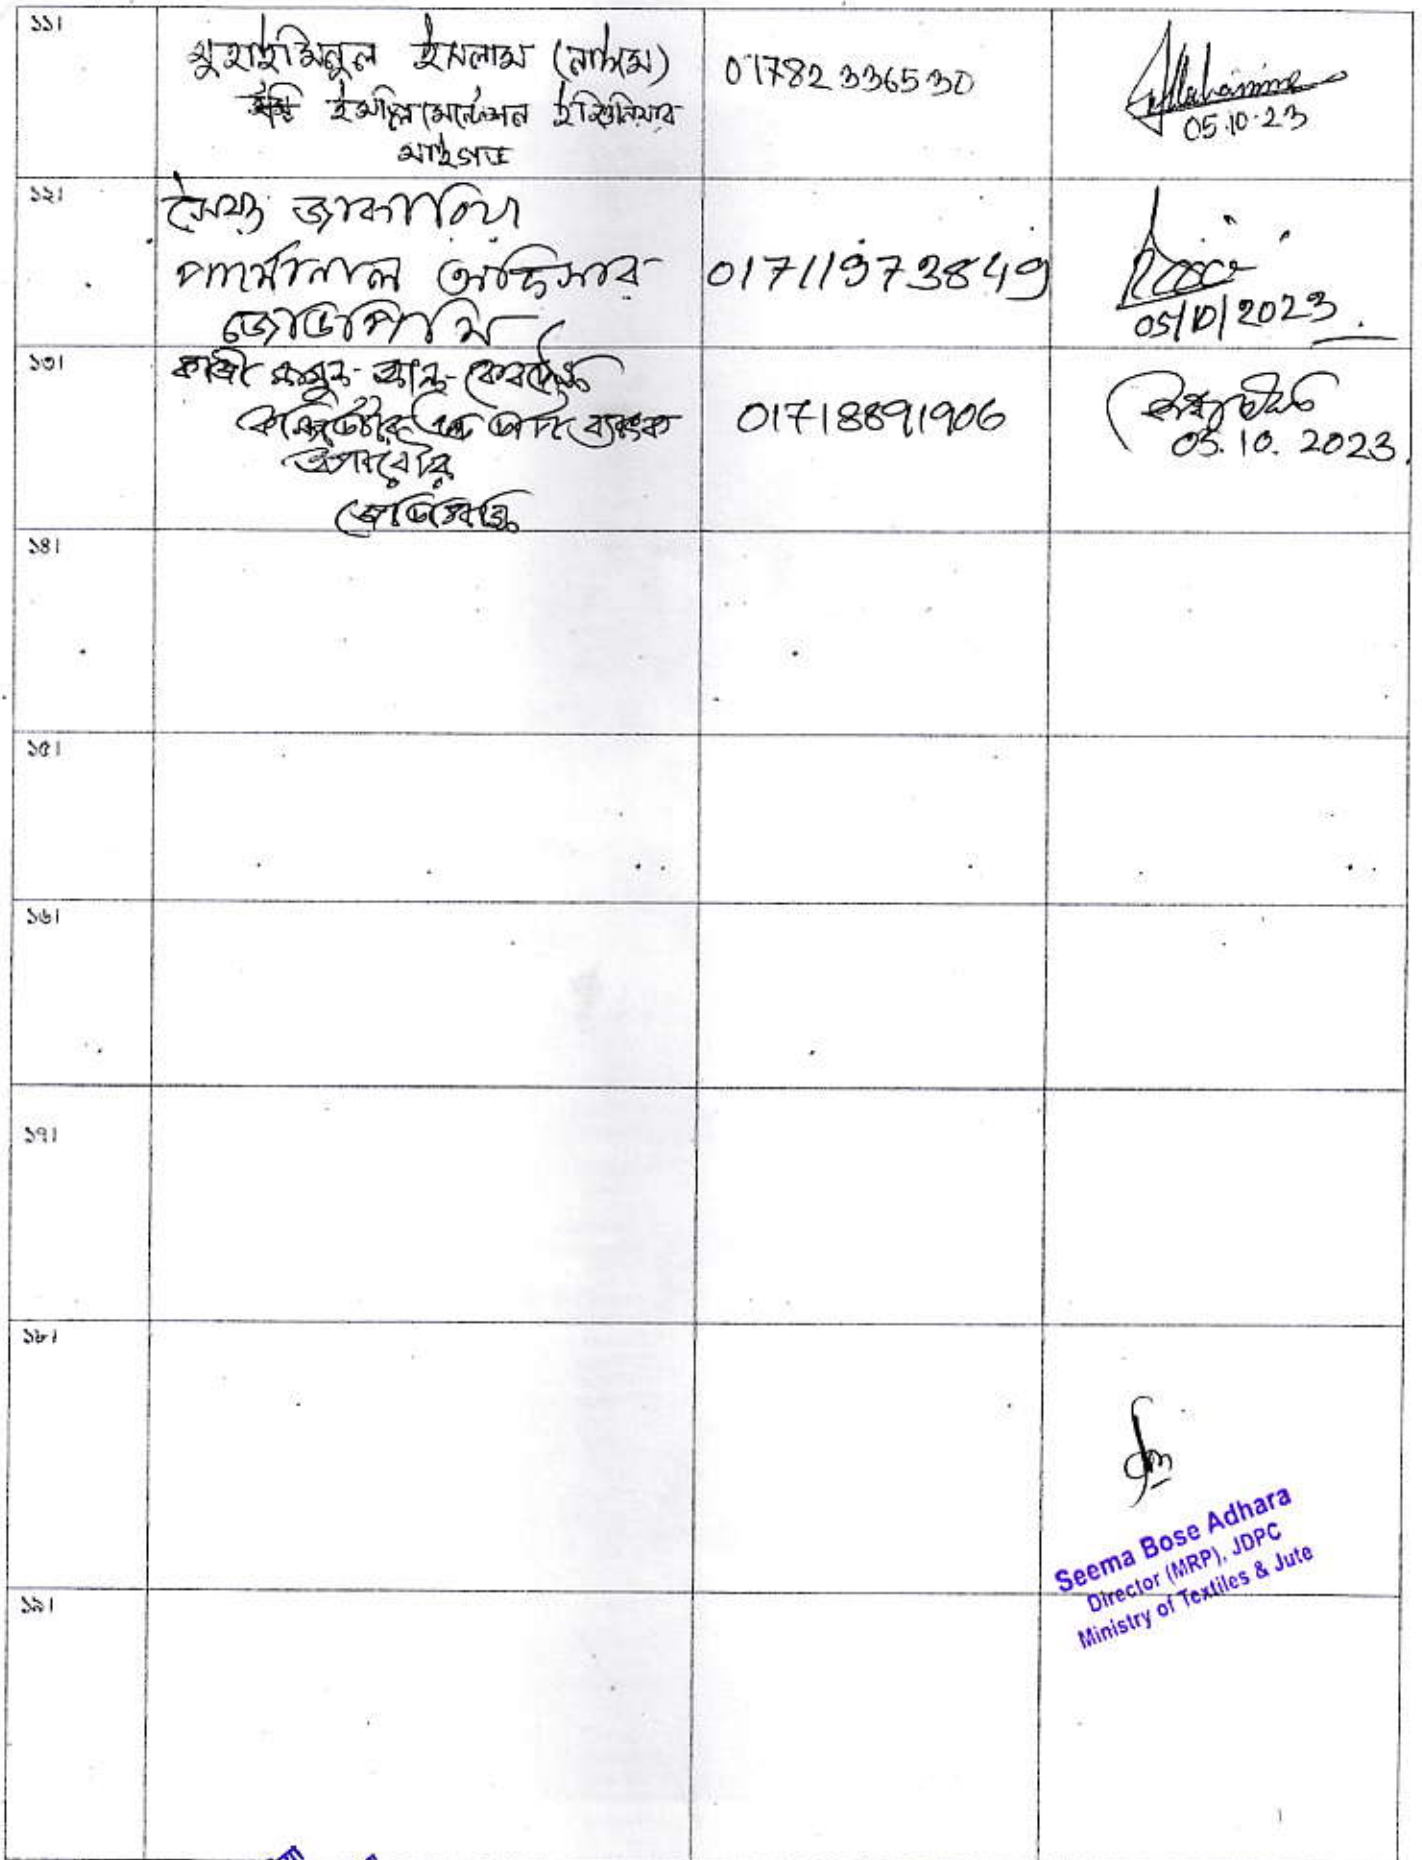 ১১।
মুহাইমিনুল ইসলাম (নাঈম)
ইমপ্লিমেন্টেশন ইঞ্জিনিয়ার
মাইগভ
01782336530
05.10.23
১২।
সৈয়দ জাকারিয়া
পার্সোনাল অফিসার
জেডিপিসি
01711973849
05/10/2023
১৩।
কাজী
কম্পিউটার এন্ড ডাটা ব্যাংক
অপারেটর
জেডিপিসি
01718891906
05.10.2023
১৪।
১৫।
১৬।
১৭।
১৮।
Seema Bose Adhara
Director (MRP), JDPC
Ministry of Textiles & Jute
১৯।